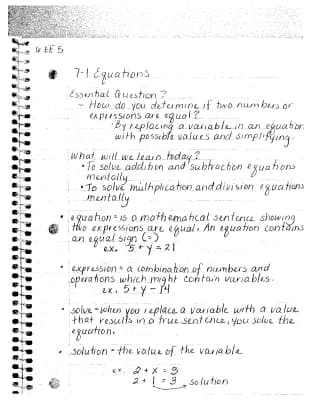 6.EE 5
7-1 Equations
Essential Question?
- How do you determine if two numbers or
expressions are equal?
·By replacing a variable in an equation
with possible values and simplifying.
What will we learn today?
• To solve addition and subtraction equations
mentally
• To solve multiplication and division equations
mentally
• equation = is a mathematical sentence showing
two expressions are equal. An equation contains
an equal sign (=)
ex. 5 + y = 21
• expression = a combination of numbers and
operations which might contain variables.
ex. 5 + y - 14
• solve = when you replace a variable with a value
that results in a true sentence, you solve the
equation.
• solution - the value of the variable
ex. 2 + x = 3
2 + 1 = 3 solution